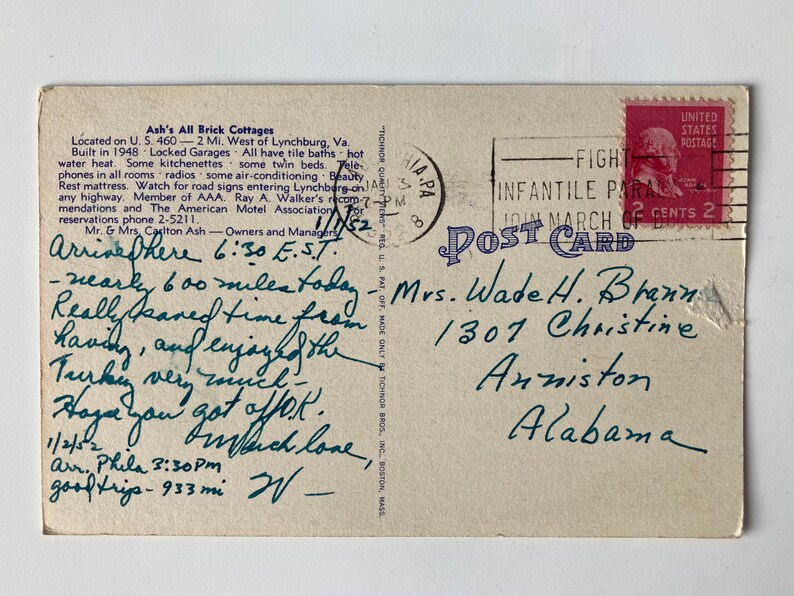 Ash's All Brick Cottages
Located on U. S. 460 — 2 Mi. West of Lynchburg, Va.
Built in 1948 · Locked Garages · All have tile baths · hot
water heat. Some kitchenettes · some twin beds. Tele-
phones in all rooms · radios · some air-conditioning · Beauty
Rest mattress. Watch for road signs entering Lynchburg on
any highway. Member of AAA. Ray A. Walker's recom-
mendations and The American Motel Association. For
reservations phone 2-5211.
Mr. & Mrs. Carlton Ash — Owners and Managers
1/1/52
Arrived here 6:30 E.S.T.
- nearly 600 miles today -
Really saved time from
having, and enjoyed the
Turkey very much -
Hope you got off O.K.
Much love,
W -
1/2/52
arr. Phila 3:30 PM
good trip - 933 mi
"TICHNOR QUALITY VIEWS" REG. U. S. PAT. OFF. MADE ONLY BY TICHNOR BROS., INC., BOSTON, MASS.
HIA, PA
JAN 3
7 - PM
1952
8
FIGHT
INFANTILE PARALY
JOIN MARCH OF D
UNITED
STATES
POSTAGE
JOHN ADAMS
2 CENTS 2
POST CARD
Mrs. Wade H. Brannon
1307 Christine
Anniston
Alabama